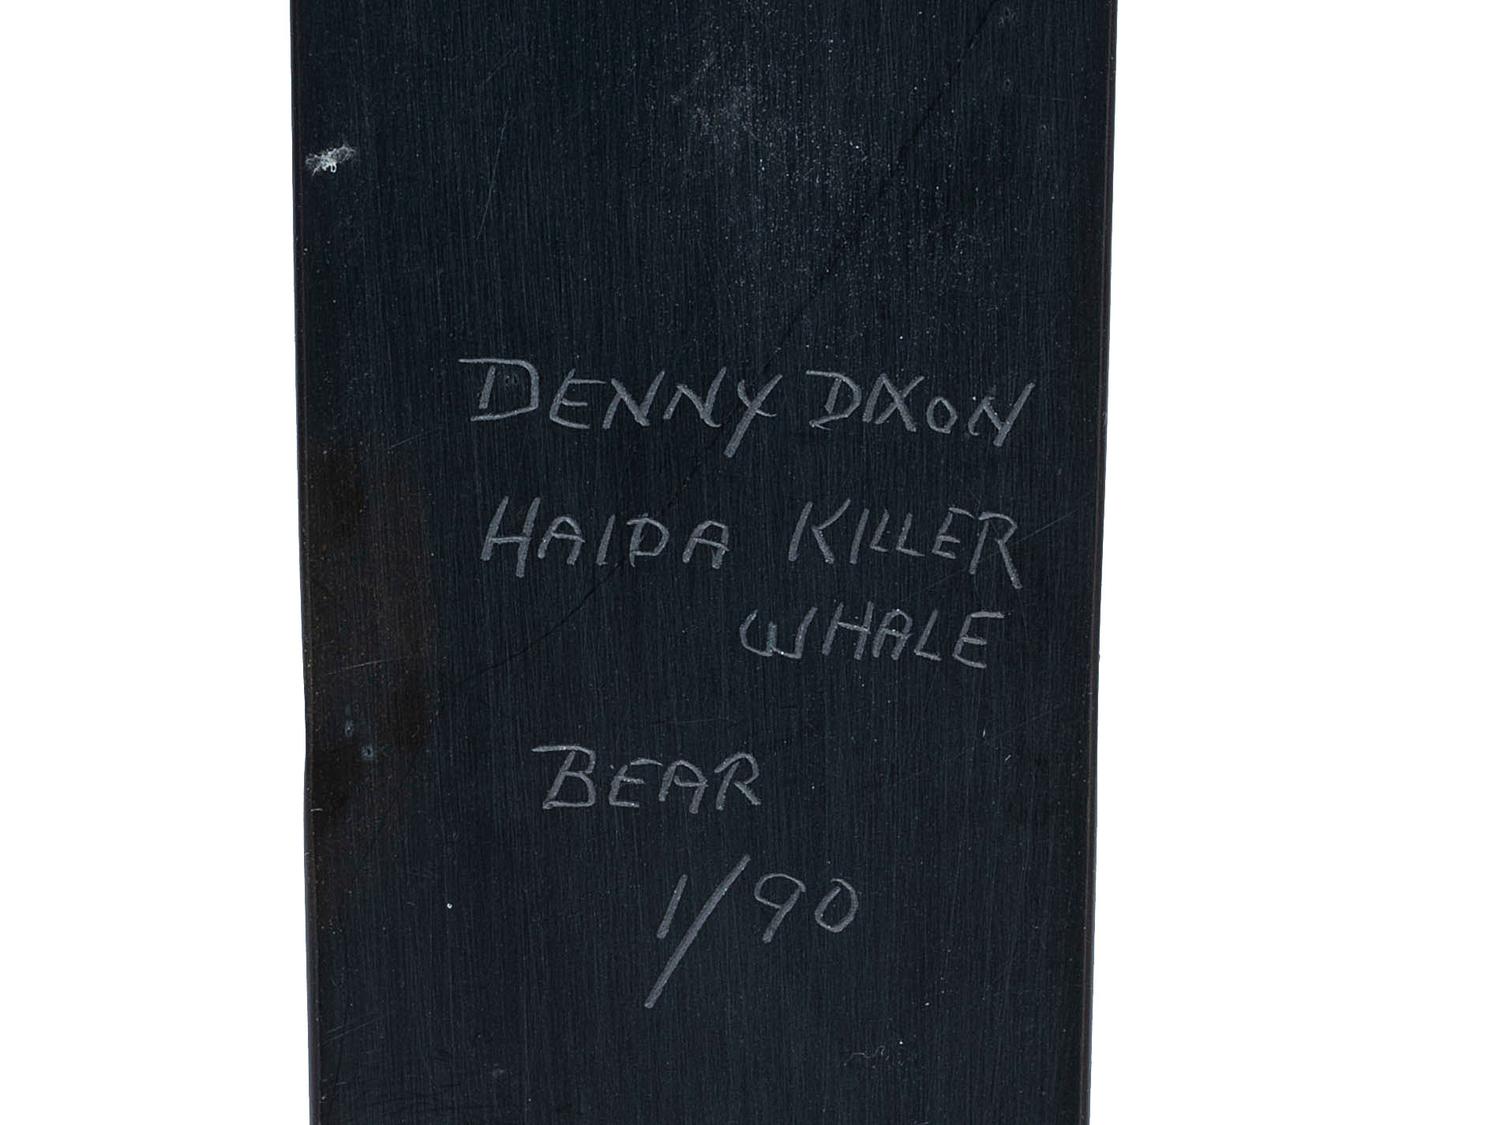 DENNY DIXON
HAIDA KILLER
WHALE
BEAR
1/90